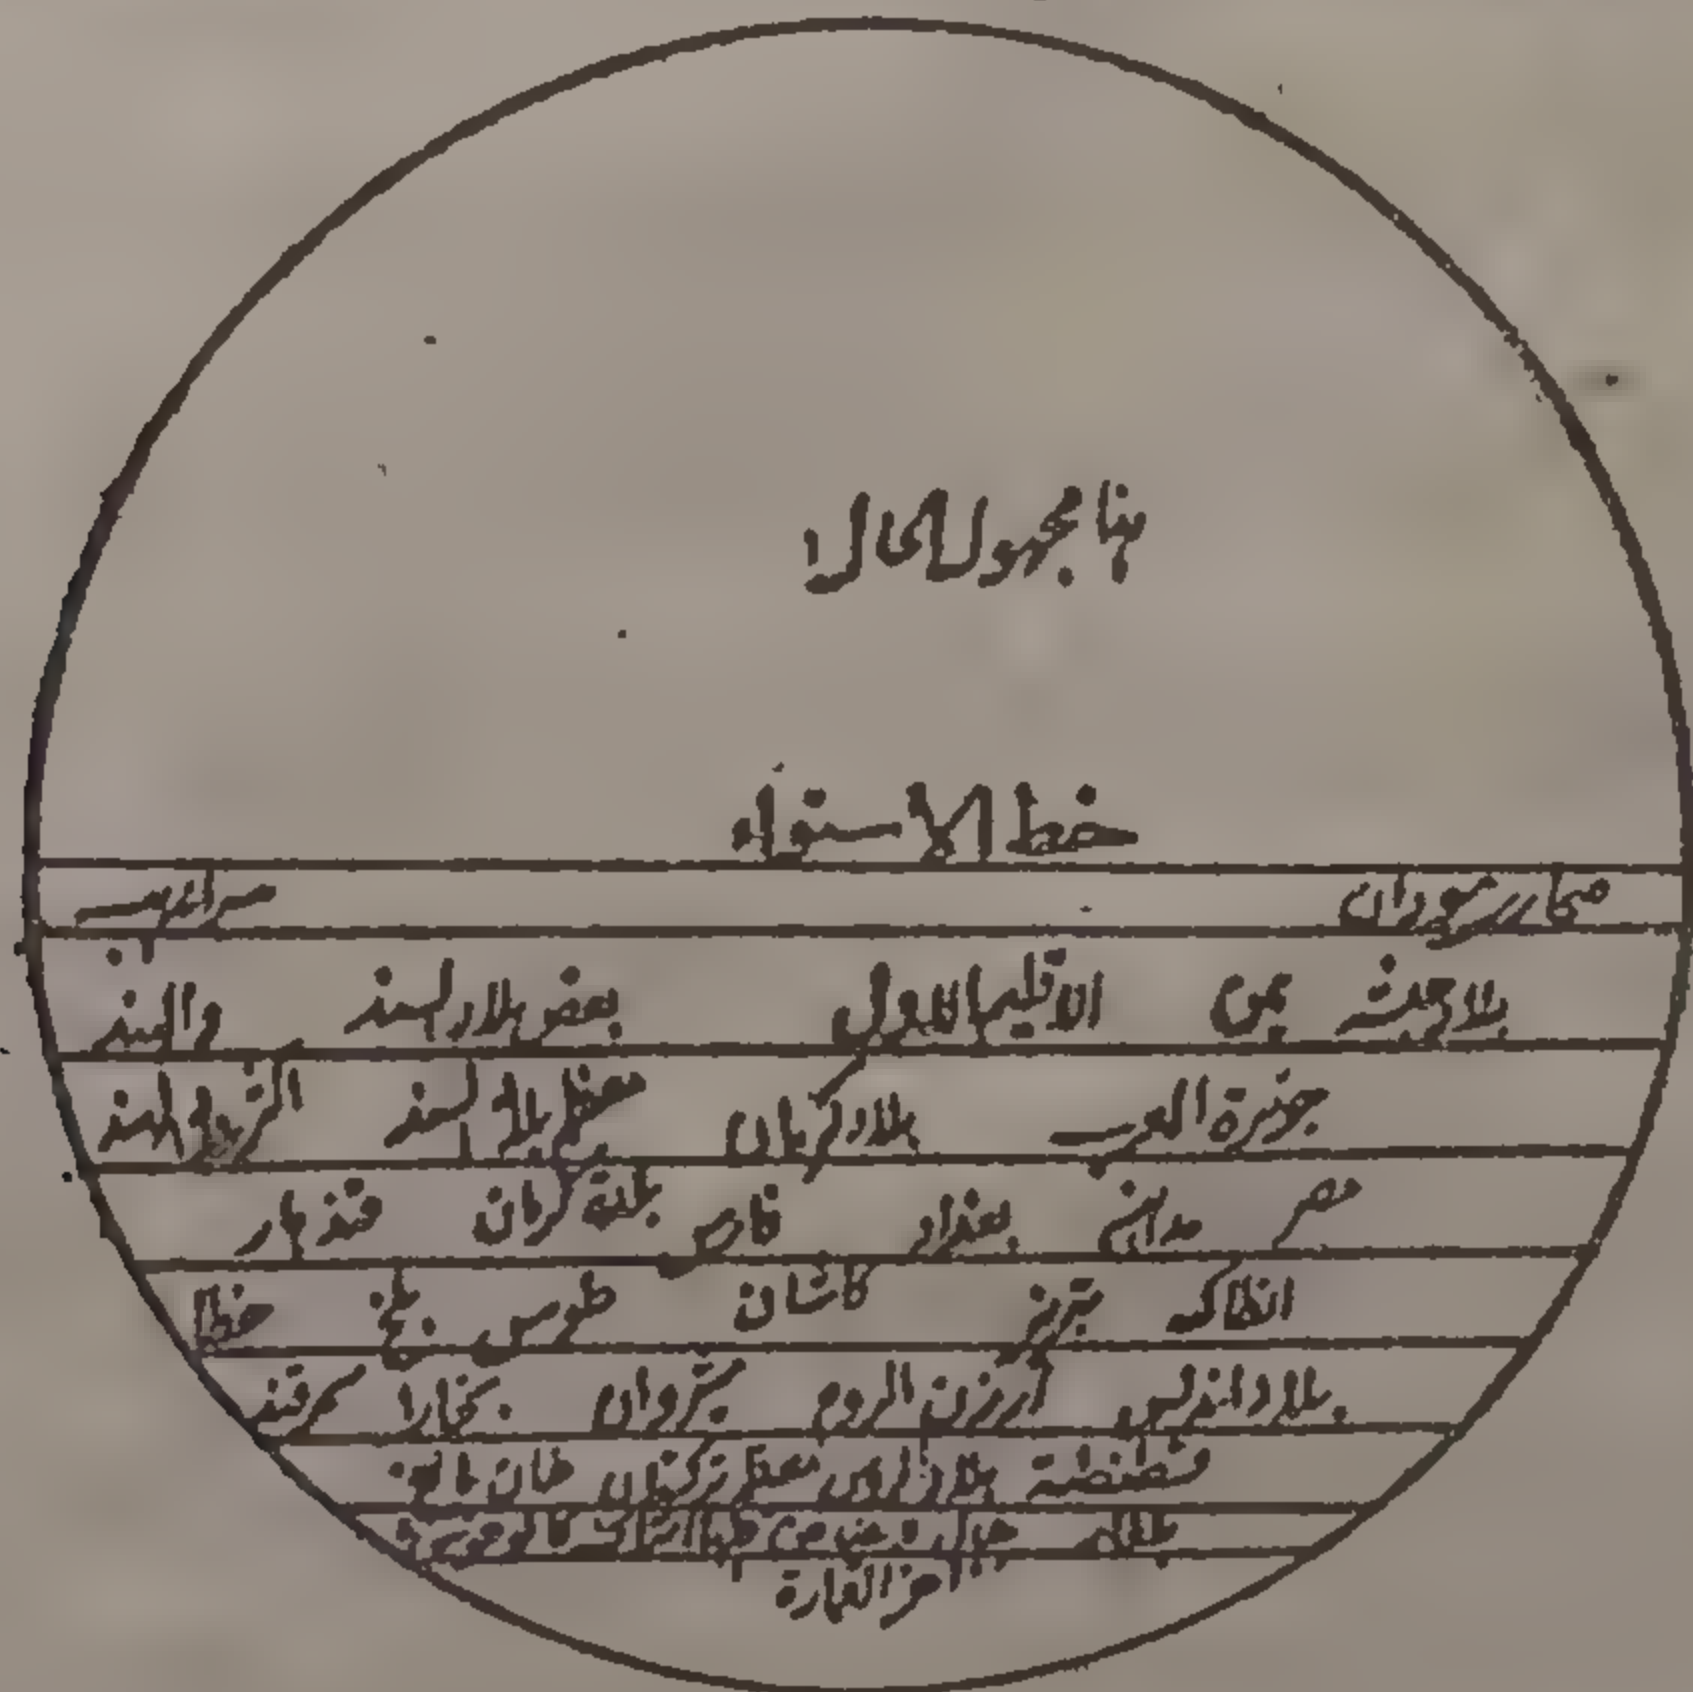 هنا مجهول الحال
خط الاستواء
سودان سراندیب
بلاد حبشة یمن الاقلیم الاول بعض بلاد السند والهند
جزیرة العرب بلاد کرمان معظم بلاد السند الهند
مصر مداین بغداد فارس کرمان قندهار
انطاکیه تبریز کاشان طوس بلخ خطا
بلاد اندلس ارزن الروم شروان بخارا سمرقند
بلاد الروس معظم ترکستان خان بالغ
العمارة